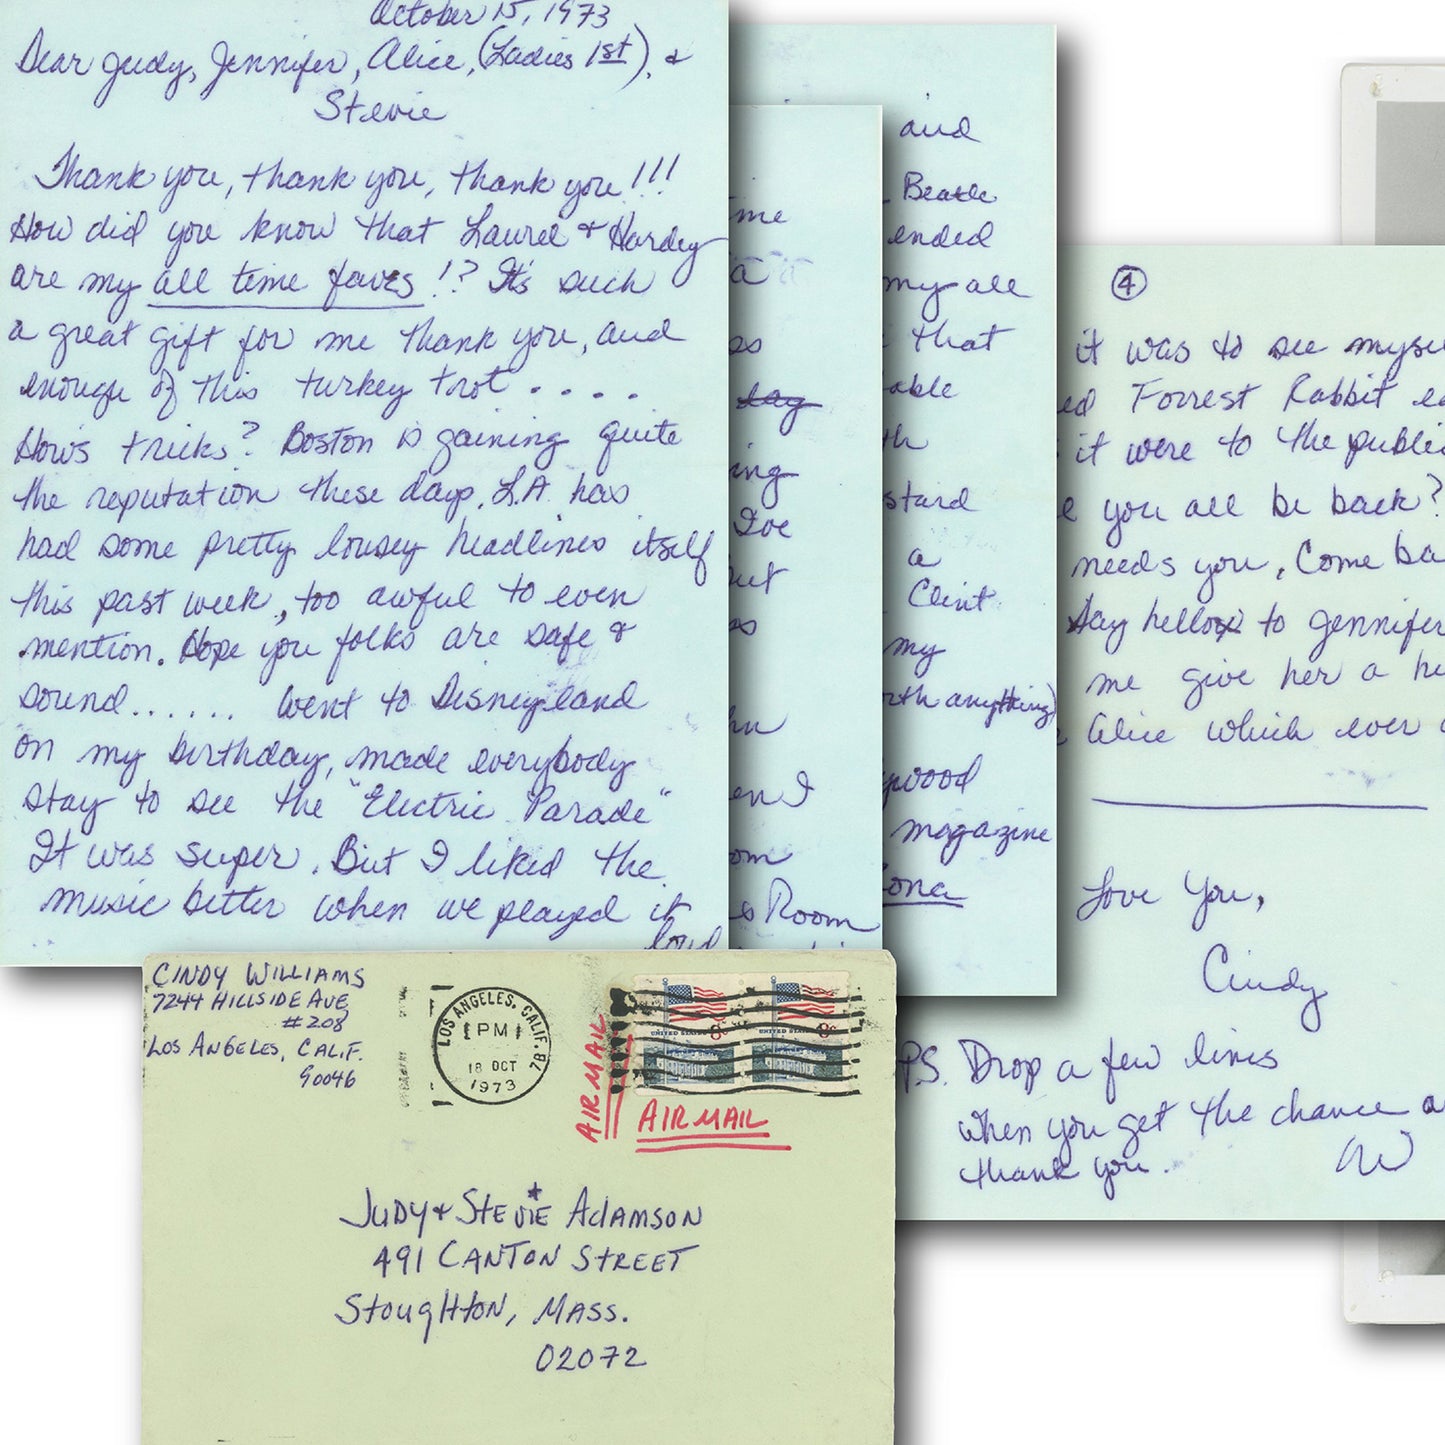 October 15, 1973
Dear Judy, Jennifer, Alice, (Ladies 1st), &
Stevie
Thank you, thank you, thank you!!!
How did you know that Laurel & Hardey
are my all time faves!? It's such
a great gift for me thank you, and
enough of this turkey trot....
How's tricks? Boston is gaining quite
the reputation these days. L.A. has
had some pretty lousey headlines itself
this past week, too awful to even
mention. Hope you folks are safe &
sound...... Went to Disneyland
on my birthday, made everybody
stay to see the "Electric Parade"
It was super. But I liked the
music better when we played it
loud
me
a
ss
day
ing
I've
out
en I
om
Room
and
Beatle
ended
my all
that
able
th
stard
a
Clint
my
rth anything)
ywood
magazine
ona
4
it was to see myse
ed Forrest Rabbit ea
it were to the public
e you all be back?
needs you, Come ba
Say hellox to Jennifer
me give her a hu
Alice which ever
Love You,
Cindy
P.S. Drop a few lines
when you get the chance a
thank you.
CW
CINDY WILLIAMS
7244 HILLSIDE AVE
#208
LOS ANGELES, CALIF.
90046
LOS ANGELES, CALIF.
PM
18 OCT
1973
UNITED STATES
8c
8c
AIR MAIL
AIR MAIL
JUDY & STEVIE ADAMSON
491 CANTON STREET
STOUGHTON, MASS.
02072